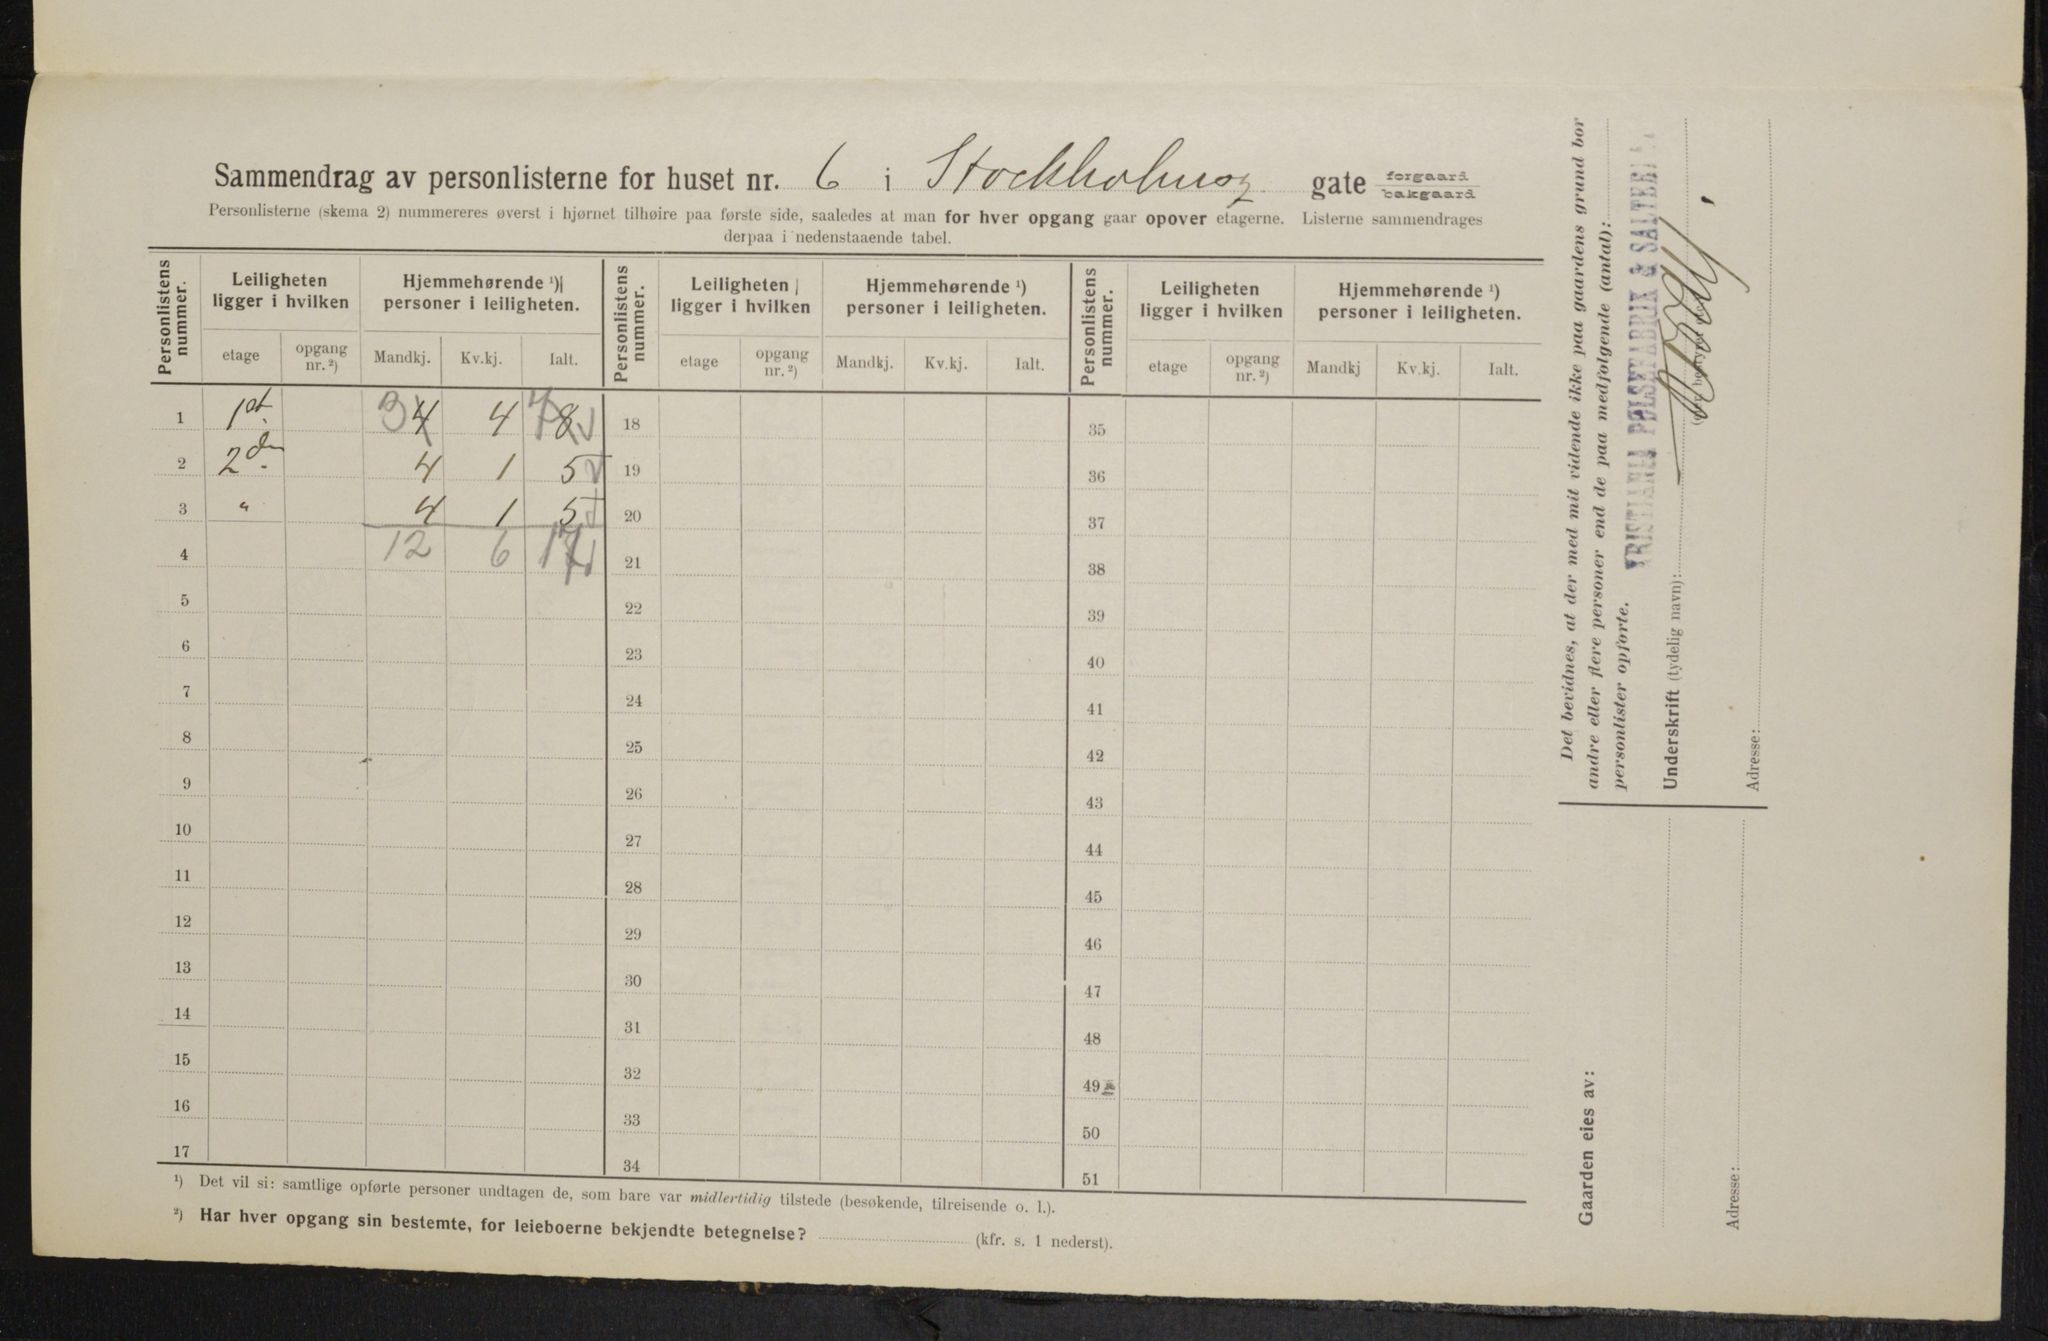 Sammendrag av personlisterne for huset nr. 6 i Stockholmsg. gate forgaard bakgaard
Personlisterne (skema 2) nummereres øverst i hjørnet tilhøire paa første side, saaledes at man for hver opgang gaar opover etagerne. Listerne sammendrages
derpaa i nedenstaaende tabel.
Personlistens nummer. Leiligheten ligger i hvilken Hjemmehørende ¹) personer i leiligheten. Personlistens nummer. Leiligheten ligger i hvilken Hjemmehørende ¹) personer i leiligheten. Personlistens nummer. Leiligheten ligger i hvilken Hjemmehørende ¹) personer i leiligheten.
etage opgang nr. ²) Mandkj. Kv.kj. Ialt. etage opgang nr. ²) Mandkj. Kv.kj. Ialt. etage opgang nr. ²) Mandkj Kv.kj. Ialt.
1 1st. 3 4 4 7 8 18 35
2 2den. 4 1 5 19 36
3 " 4 1 5 20 37
4 12 6 17 21 38
5 22 39
6 23 40
7 24 41
8 25 42
9 26 43
10 27 44
11 28 45
12 29 46
13 30 47
14 31 48
15 32 49
16 33 50
17 34 51
¹) Det vil si: samtlige opførte personer undtagen de, som bare var midlertidig tilstede (besøkende, tilreisende o. l.).
²) Har hver opgang sin bestemte, for leieboerne bekjendte betegnelse? (kfr. s. 1 nederst).
Det bevidnes, at der med mit vidende ikke paa gaardens grund bor
andre eller flere personer end de paa medfølgende (antal):
personlister opførte.
KRISTIANIA PØLSEFABRIK & SALTERI
Underskrift (tydelig navn):
Adresse:
Gaarden eies av:
Adresse: